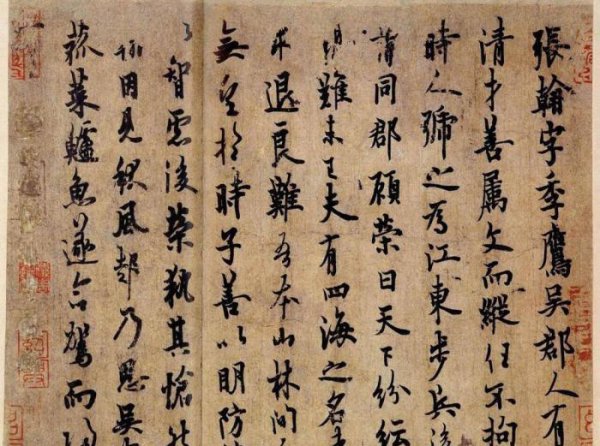 張翰字季鷹吳郡人有
清才善屬文而縱任不拘
時人號之為江東步兵後
同郡顧榮曰天下紛紜
難未已夫有四海之名
求退良難吾本山林間
無望於時子善以明防
智慮後榮執其愴然
翰因見秋風起乃思吳
菰菜鱸魚遂命駕而